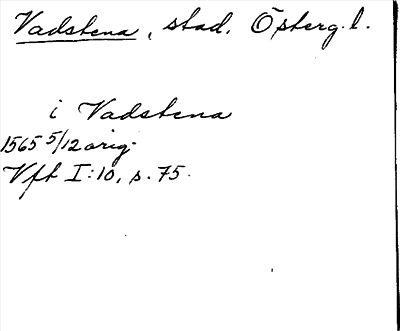 Vadstena, stad, Österg. l.
i Vadstena
1565 5/12 orig.
Vft I:10, s. 75.